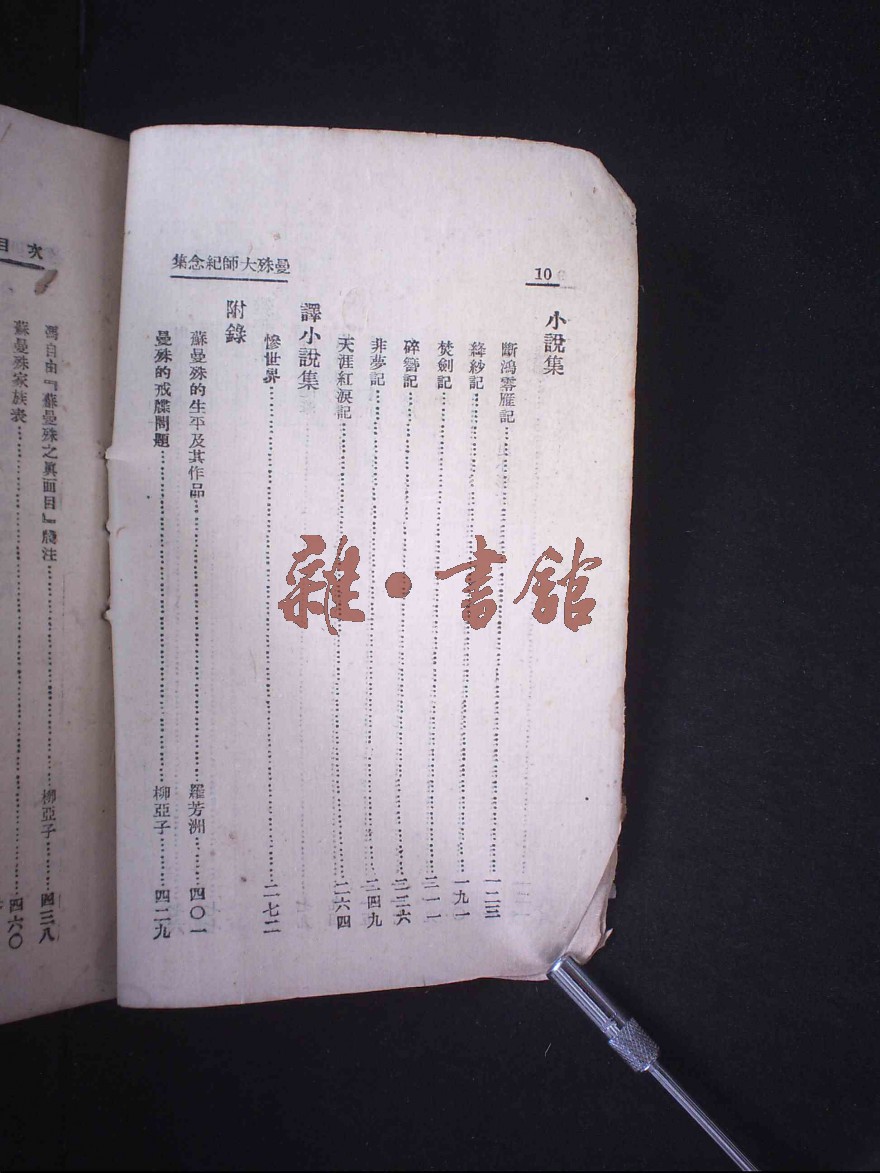 10
集念紀師大殊曼
小說集
斷鴻零雁記……一二三
絳紗記……一九一
焚劍記……二一一
碎簪記……二二六
非夢記……二四九
天涯紅淚記……二六四
譯小說集
慘世界……二七二
附錄
蘇曼殊的生平及其作品……羅芳洲……四〇一
曼殊的戒牒問題……柳亞子……四二九
目次
馮自由『蘇曼殊之眞面目』牋注……柳亞子……四三八
蘇曼殊家族表……四六〇
雜·書館